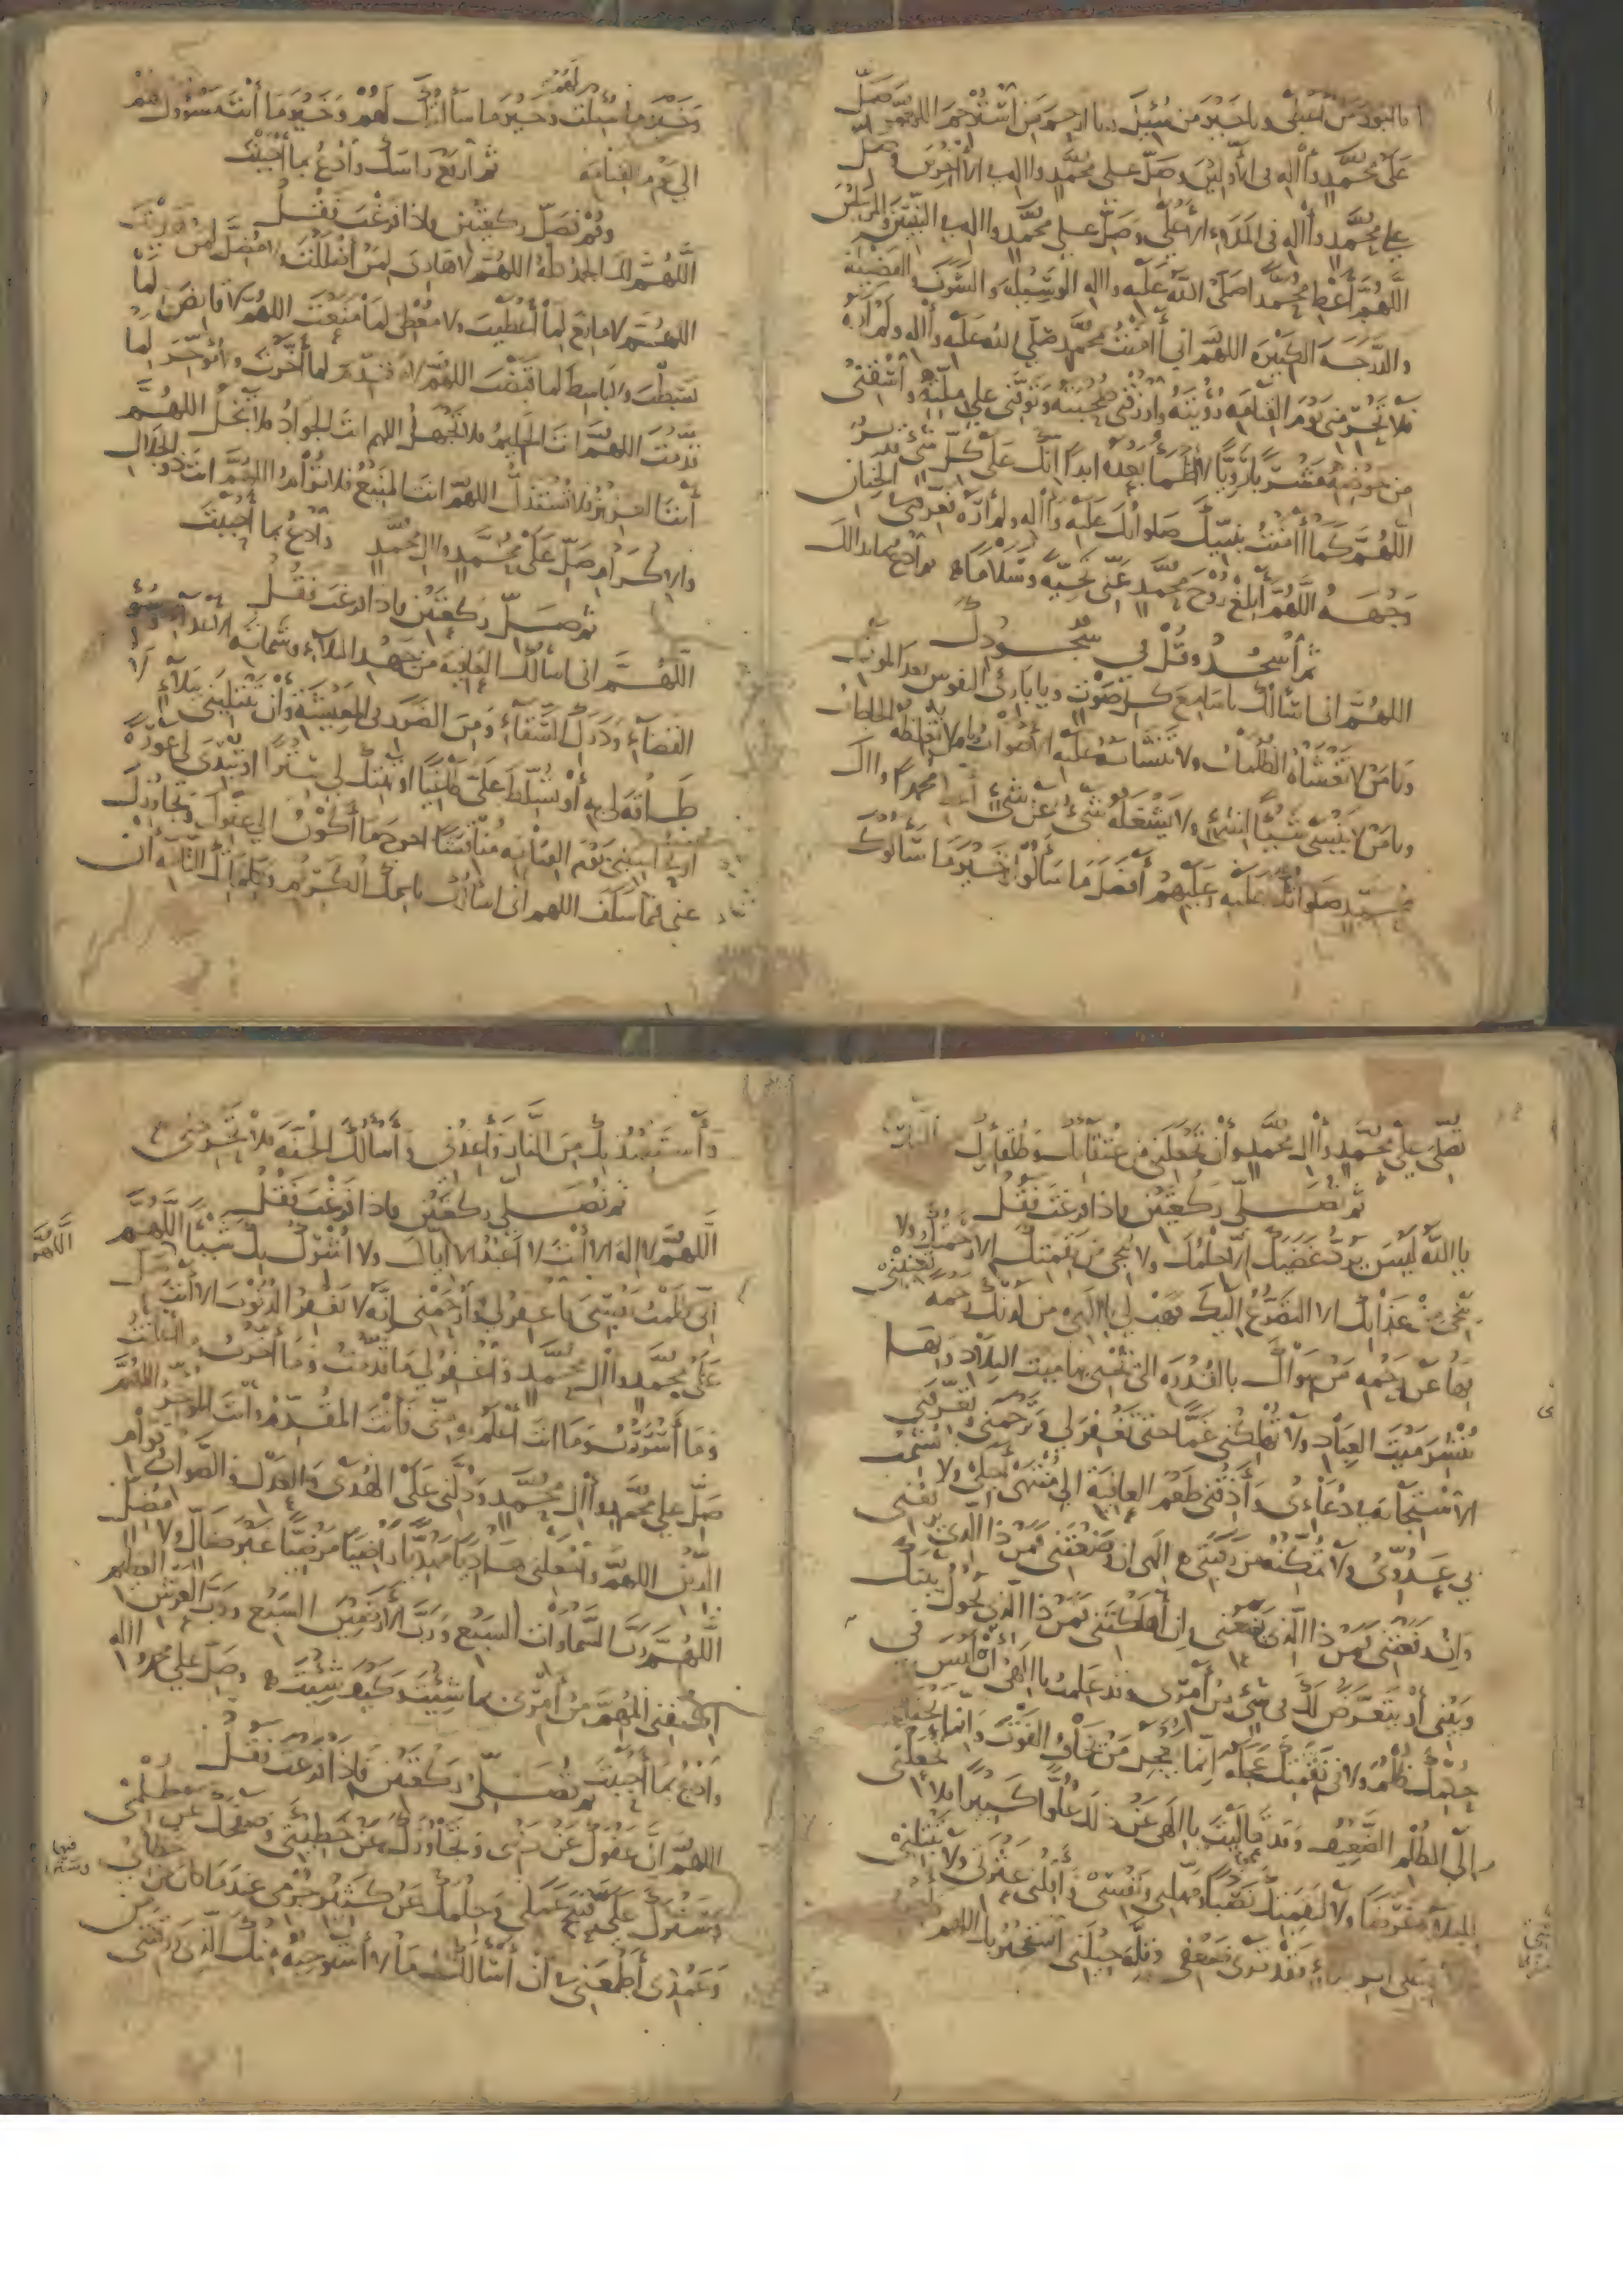 يا أجود من أعطى ويا خير من سئل ويا ارحم من استرحم اللهم صل
على محمد وآله في الأولين وصل على محمد وآله في الآخرين وصل
على محمد وآله في الملاء الأعلى وصل على محمد وآله في النبيين والمرسلين
اللهم أعط محمدا صلى الله عليه وآله الوسيلة والشرف والفضيلة
والدرجة الكبيرة اللهم اني آمنت بمحمد صلى الله عليه وآله ولم أره
فلا تحرمني يوم القيامة رؤيته وارزقني صحبته وتوفني على ملته واسقني
من حوضه مشربا رويا لا أظمأ بعده ابدا انك على كل شيء قدير
اللهم كما آمنت بنبيك صلواتك عليه وآله ولم أره فعرفني في الجنان
وجهه اللهم أبلغ روح محمد عني تحية وسلاما ثم ادع بما بدا لك
ثم اسجد وقل في سجودك
اللهم اني اسألك يا سامع كل صوت ويا بارئ النفوس بعد الموت
ويا من لا تغشاه الظلمات ولا تتشابه عليه الأصوات ويا من لا تغلطه الحاجات
ويا من لا ينسى شيئا لشيء ولا يشغله شيء عن شيء أعط محمدا وآل
محمد صلواتك عليه وعليهم أفضل ما سألوا وخير ما سألوك
لهم
وخير ما سئلت وخير ما سألتك لهم وخير ما أنت مسؤول لهم
الى يوم القيامة ثم ارفع راسك وادع بما أحببت
وقم تصل ركعتين واذا فرغت فقل
اللهم لك الحمد كله اللهم لا هادي لمن أضللت ولا مضل لمن هديت
اللهم لا مانع لما أعطيت ولا معطي لما منعت اللهم لا قابض لما
بسطت ولا باسط لما قبضت اللهم لا مقدم لما أخرت ولا مؤخر لما
قدمت اللهم انت الحليم فلا تجهل اللهم انت الجواد فلا تبخل اللهم
انت العزيز فلا تستذل اللهم انت المنيع فلا ترام اللهم انت ذو الجلال
والاكرام صل على محمد وآل محمد وادع بما أحببت
ثم صل ركعتين فاذا فرغت فقل
اللهم اني اسألك العافية من جهد البلاء وشماتة الأعداء وسوء
القضاء ودرك الشقاء ومن الضرر في المعيشة وأن تبتليني ببلاء لا
طاقة لي به أو تسلط علي طاغيا او تهتك لي سترا او تبدي لي عورة
او تحاسبني يوم القيامة مناقشا احوج ما أكون الى عفوك وتجاوزك
عني فيما سلف اللهم اني اسألك باسمك الكريم وكلماتك التامة أن
تصلي على محمد وآل محمد وأن تجعلني من عتقائك وطلقائك من النار
ثم تصلي ركعتين فاذا فرغت فقل
يا الله ليس يرد غضبك إلا حلمك ولا ينجي من نقمتك إلا رحمتك ولا
ينجي من عذابك الا التضرع اليك فهب لي يا الهي من لدنك رحمة تغنيني
بها عن رحمة من سواك بالقدرة التي تحيي بها ميت البلاد وبها
تنشر ميت العباد ولا تهلكني غما حتى تغفر لي وترحمني وتعرفني
الاستجابة في دعائي وأذقني طعم العافية الى منتهى أجلي ولا تشمت
بي عدوي ولا تمكنه من رقبتي الهي ان وضعتني فمن ذا الذي يرفعني
وان رفعتني فمن ذا الذي يضعني وإن أهلكتني فمن ذا الذي يحول بينك
وبيني أو يتعرض لك في شيء من أمري وقد علمت يا الهي أن ليس في
حكمك ظلم ولا في نقمتك عجلة إنما يعجل من يخاف الفوت وانما يحتاج
إلى الظلم الضعيف وقد تعاليت يا إلهي عن ذلك علوا كبيرا فلا تجعلني
للبلاء غرضا ولا لنقمتك نصبا ومهلني ونفسني وأقلني عثرتي ولا تتبعني
ببلاء على اثر بلاء فقد ترى ضعفي وقلة حيلتي استجير بك اللهم
وأستعيذ بك من النار فأعذني وأسألك الجنة فلا تحرمني
ثم تصلي ركعتين فاذا فرغت فقل
اللهم لا إله الا أنت لا أعبد الا اياك ولا أشرك بك شيئا اللهم
اني ظلمت نفسي فاغفر لي وارحمني إنه لا يغفر الذنوب الا أنت صل
على محمد وآل محمد واغفر لي ما قدمت وما أخرت وأعلنت
وما أسررت وما انت أعلم به مني فأنت المقدم وأنت المؤخر اللهم
صل على محمد وآل محمد ودلني على الهدى والعدل والصواب وقوام
الدين اللهم واجعلني هاديا مهديا راضيا مرضيا غير ضال ولا مضل
اللهم رب السماوات السبع ورب الأرضين السبع ورب العرش العظيم
اكفني المهم من أمري بما شئت وكيف شئت وصل على محمد وآله
وادع بما أحببت ثم تصلي ركعتين فاذا فرغت فقل
اللهم ان عفوك عن ذنبي وتجاوزك عن خطيئتي وصفحك عن ظلمي
وسترك على قبيح عملي وحلمك عن كثير جرمي عندما كان من خطائي
وعمدي أطمعني في أن أسألك ما لا أستوجبه منك الذي رزقتني من
اللهم